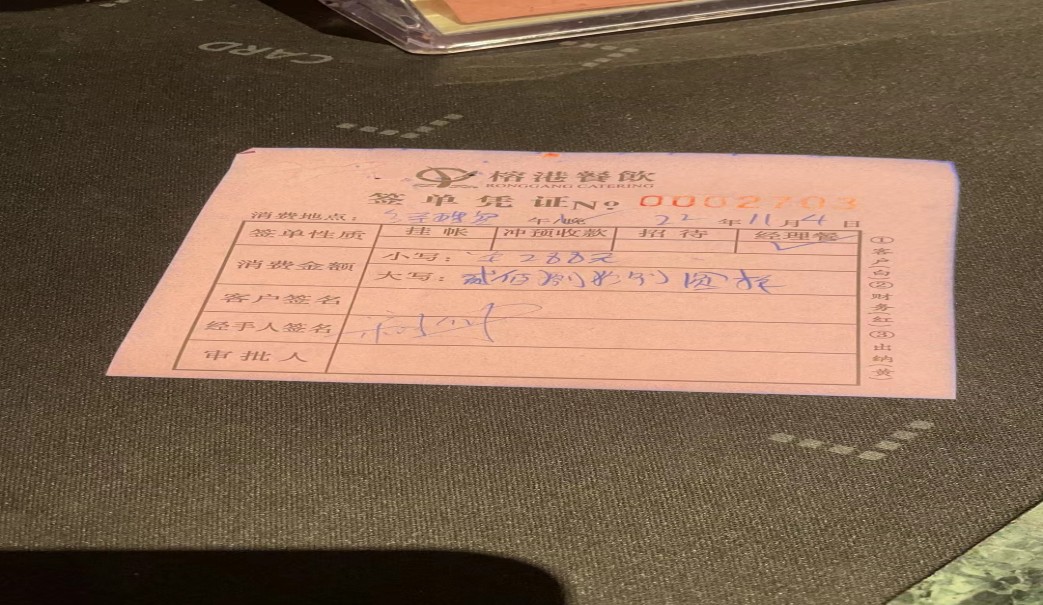 CARD
榕港餐飲
RONGGANG CATERING
签单凭证 No 0002703
消费地点： 午/晚 22年11月4日
签单性质 挂帐 冲预收款 招待 经理餐
消费金额 小写：¥288元
大写：贰佰捌拾捌圆整
客户签名
经手人签名
审批人
①客户(白)②财务(红)③出纳(黄)